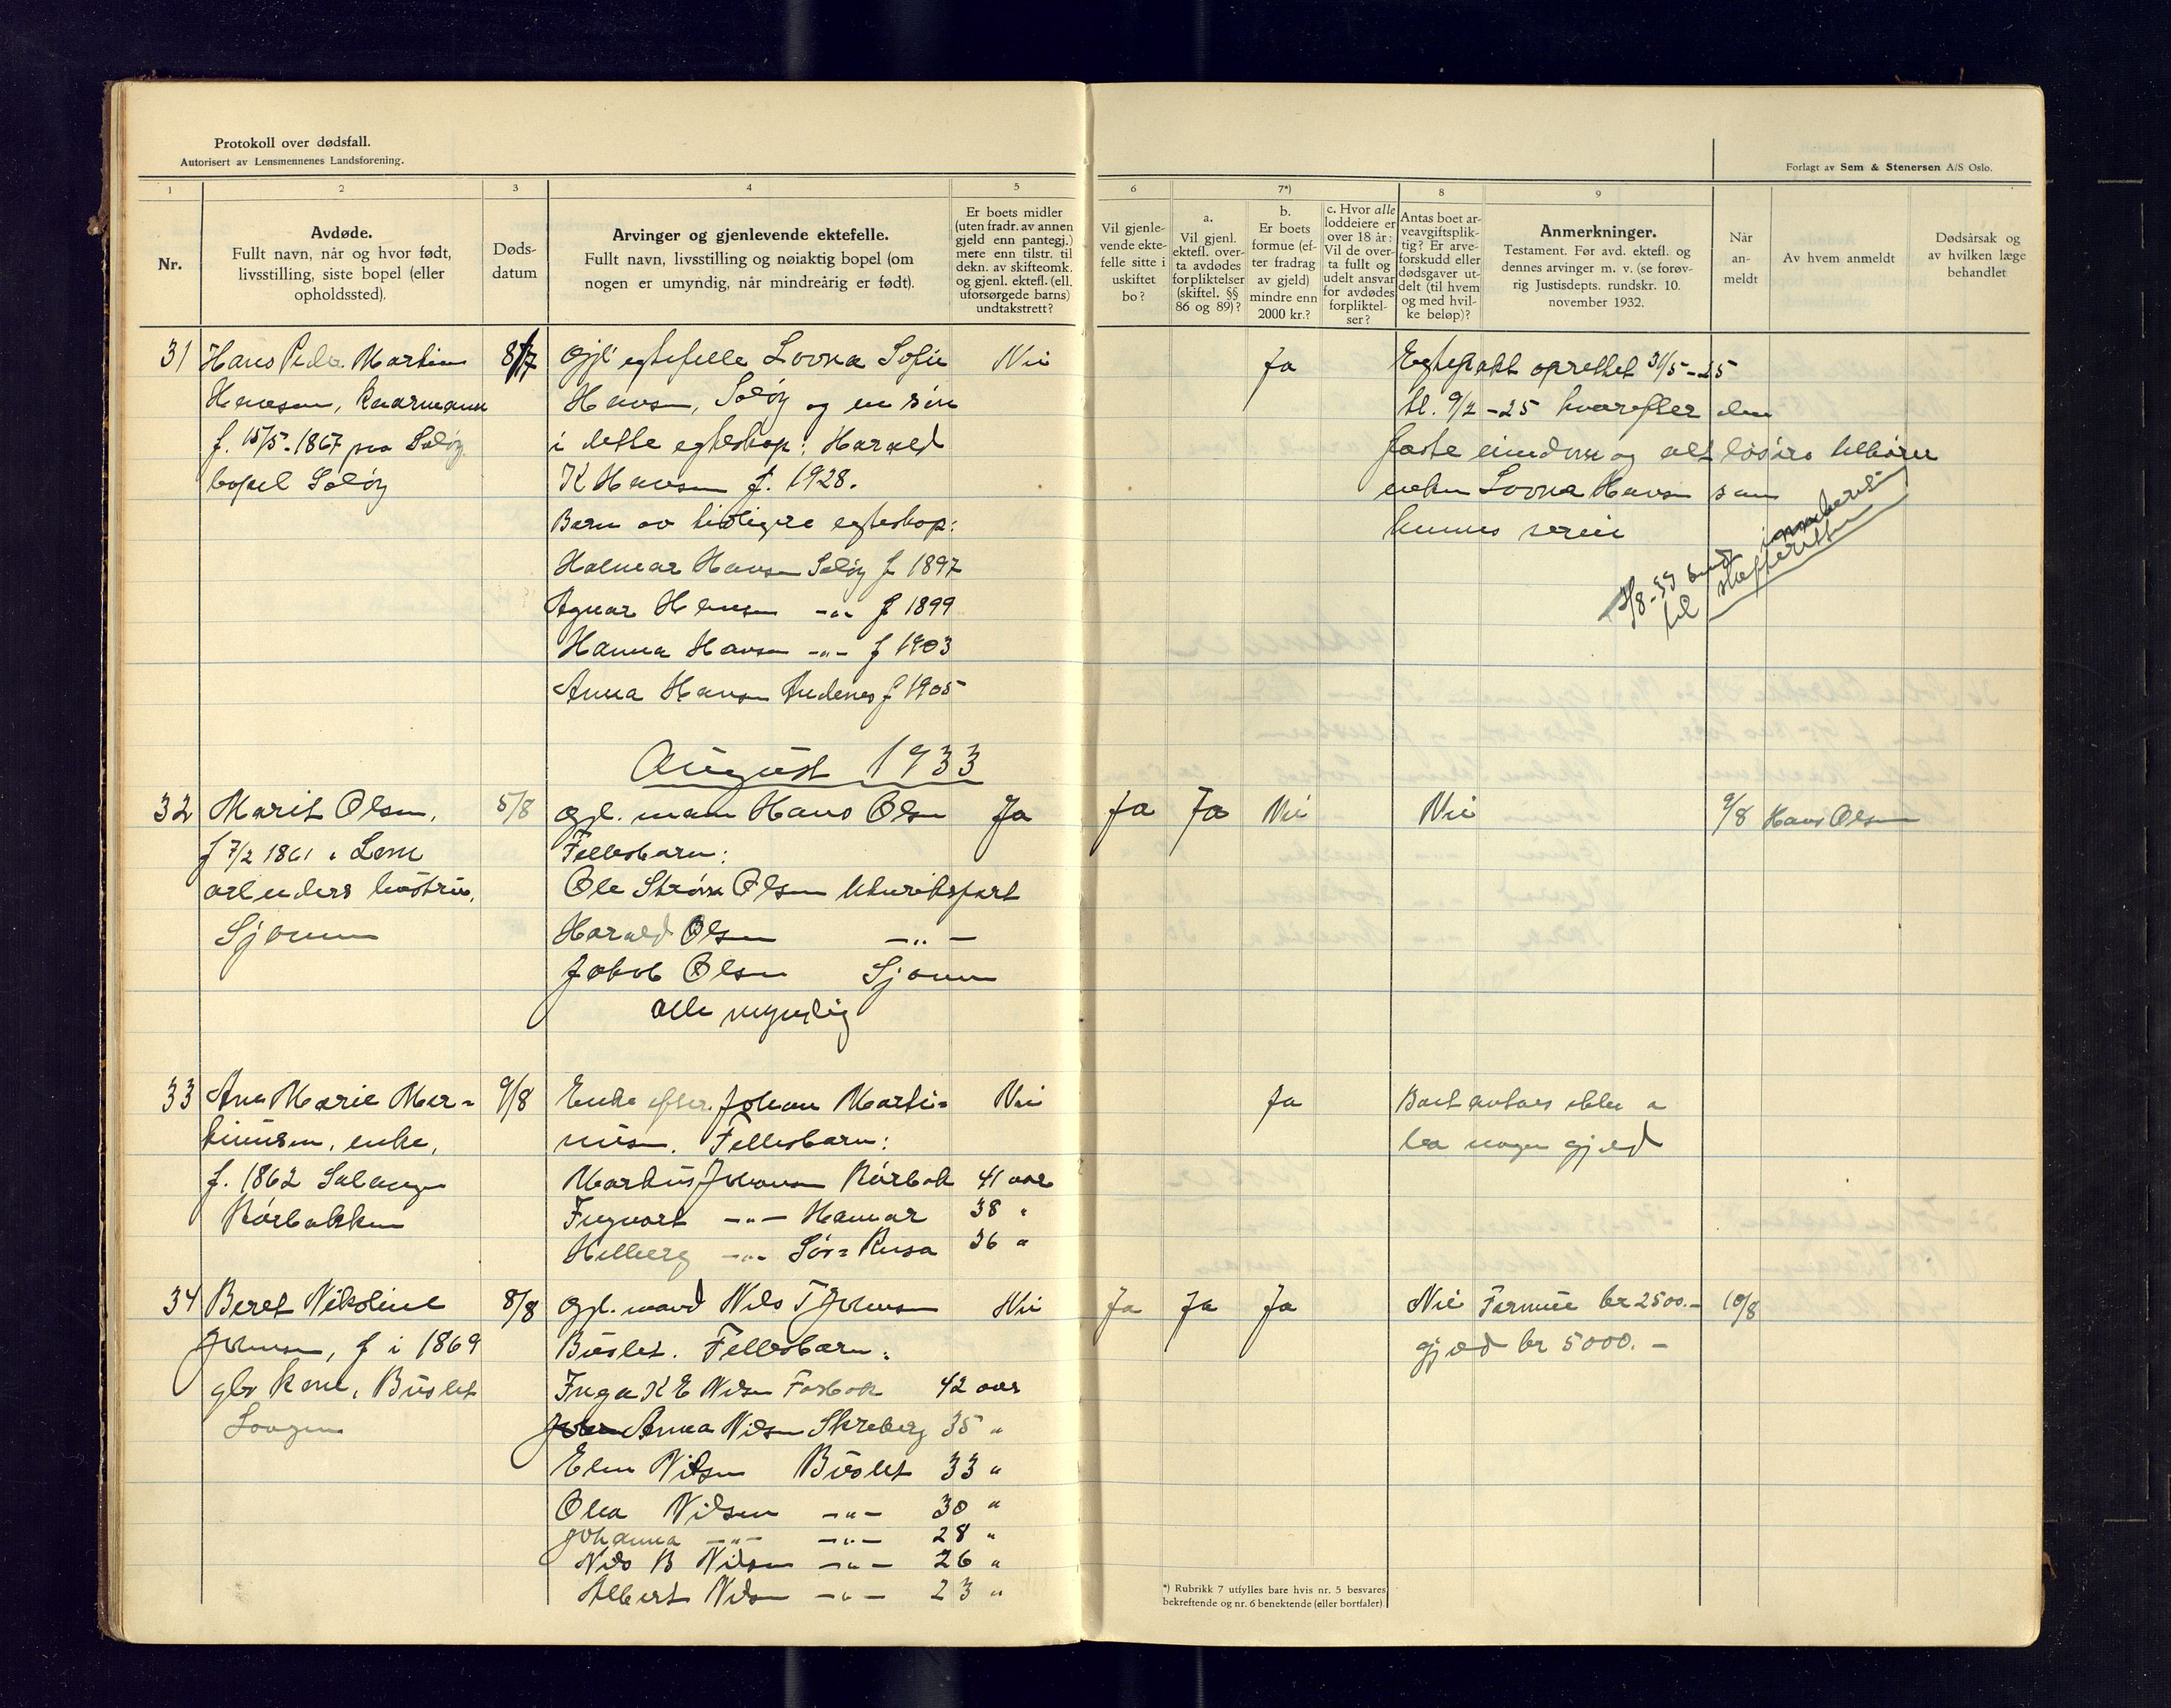 Protokoll over dødsfall.
Autorisert av Lensmennenes Landsforening.
Forlagt av Sem & Stenersen A/S Oslo.
1 2 3 4 5 6 7*) 8 9
Nr.
Avdøde.
Fullt navn, når og hvor født,
livsstilling, siste bopel (eller
opholdssted).
Døds-
datum
Arvinger og gjenlevende ektefelle.
Fullt navn, livsstilling og nøiaktig bopel (om
nogen er umyndig, når mindreårig er født).
Er boets midler
(uten fradr. av annen
gjeld enn pantegj.)
mere enn tilstr. til
dekn. av skifteomk.
og gjenl. ektefl. (ell.
uforsørgede barns)
undtakstrett?
Vil gjenle-
vende ekte-
felle sitte i
uskiftet
bo?
a.
Vil gjenl.
ektefl. over-
ta avdødes
forpliktelser
(skiftel. §§
86 og 89)?
b.
Er boets
formue (ef-
ter fradrag
av gjeld)
mindre enn
2000 kr.?
c. Hvor alle
loddeiere er
over 18 år:
Vil de over-
ta fullt og
udelt ansvar
for avdødes
forpliktel-
ser?
Antas boet ar-
veavgiftsplik-
tig? Er arve-
forskudd eller
dødsgaver ut-
delt (til hvem
og med hvil-
ke beløp)?
Anmerkninger.
Testament. Før avd. ektefl. og
dennes arvinger m. v. (se forøv-
rig Justisdepts. rundskr. 10.
november 1932.
Når
an-
meldt
Av hvem anmeldt
Dødsårsak og
av hvilken læge
behandlet
31 Hans Peder Martin 8/7 Gjl egtefelle Lovna Sofie Nei Ja Egtepakt oprettet 31/5-25
Hansen, f. 15/5-1867 Hansen, Soløy og en sön tl. 9/2-25 hvorefter den
bopel Soløy i dette egteskap: Harald faste eiendom og alt løsøre tilhører
K Hansen f. 1928. enken Lovna Hansen som
Barn av tidligere egteskap: hennes særeie
Halmar Hansen Soløy f 1897
Agnar Hansen -"- f 1899
Hanna Hansen -"- f 1903
Anna Hansen Andenes f 1905
til skifteretten
August 1933
32 Marit Olsen, 5/8 Gjl. mann Hans Olsen Ja Ja Ja Nei Nei 9/8 Hans Olsen
f 7/2 1861 i Lom Fellesbarn:
Ole Olsen
Harald Olsen -"-
Jakob Olsen
alle myndig
33 Ane Marie Mar- 9/8 Enke efter Johan Marti- Nei Ja Boet antaes ikke a
tinusen, enke, nusen. Fellesbarn: ha nogen gjeld
f. 1862 Salangen Markus Johansen Rörbak 41 aar
Rörbakken Ingvart -"- Hamar 38 "
-"- 36 "
34 Beret Nikoline 8/8 Gjl. mand Nils Johnsen Nei Ja Ja Ja Nei Formue kr 2500.- 10/8
Johnsen, f i 1869 Fellesbarn: gjeld kr 5000.-
Inga K E Nilsen 42 aar
Anna Nilsen 35 "
Nilsen 33 "
Olea Nilsen -"- 30 "
Johanna -"- -"- 28 "
Nils B Nilsen -"- 26 "
Albert Nilsen -"- 23 "
*) Rubrikk 7 utfylles bare hvis nr. 5 besvares
bekreftende og nr. 6 benektende (eller bortfaler).